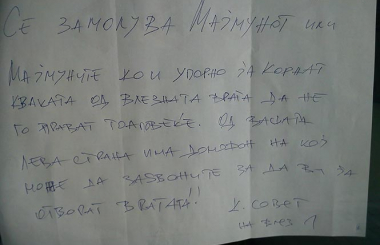 Се замолува Мајмунот или
Мајмуните кои упорно ја кордат
кваката од влезната врата да не
го прават тоа повеќе. Од вашата
лева страна има домофон на кој
може да заѕвоните за да ви ја
отворат вратата!!
К. Совет
на влез 1